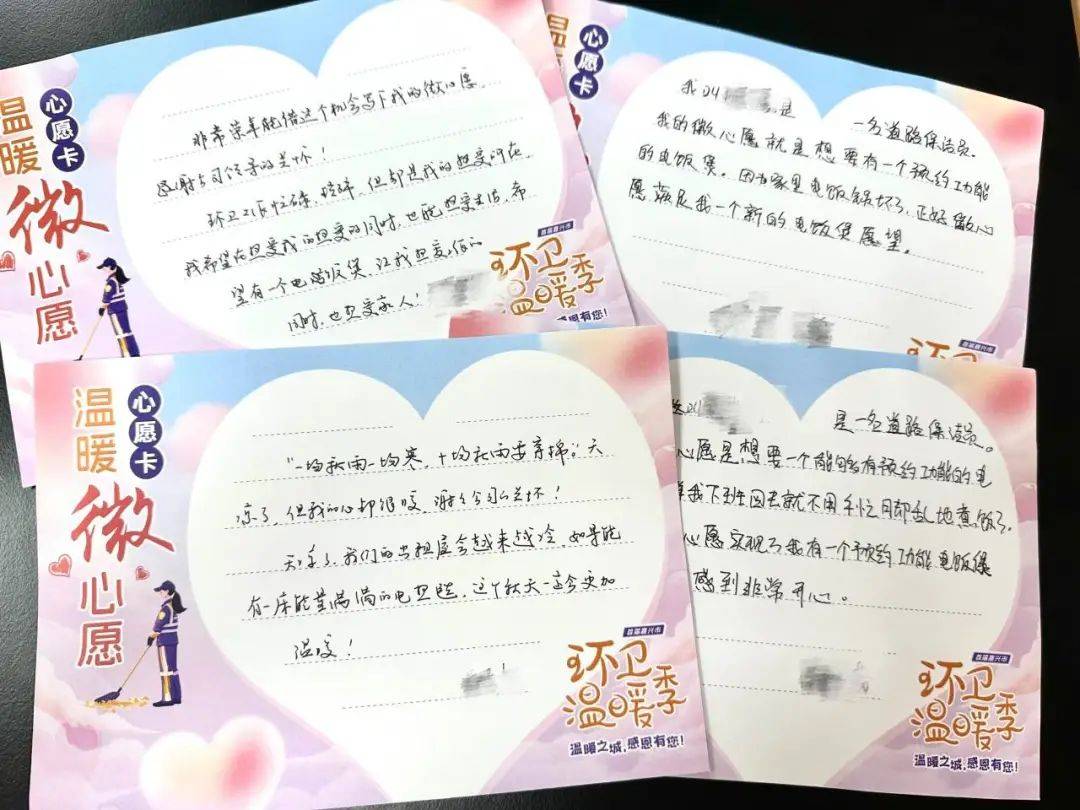 温暖
心愿卡
微心愿
非常荣幸能借这个机会写下我的微心愿,
感谢公司领导的关怀!
环卫工作忙碌、琐碎,但却是我的热爱所在,
我希望在热爱我的热爱的同时,也能热爱生活,希
望有一个电饭煲,让我热爱你的
同时,也热爱家人!
环卫
温暖季
感恩有您!
温暖
心愿卡
我叫
是
一名道路保洁员.
我的微心愿就是想要有一个预约功能
的电饭煲。因为家里电饭锅坏了,正好微心
愿满足我一个新的电饭煲愿望。
首届嘉兴市
环卫
温暖
心愿卡
微心愿
“一场秋雨一场寒,十场秋雨要穿棉。”天
凉了,但我的心却很暖,谢谢公司的关怀!
天冷了,我们的出租屋会越来越冷,如果能
有一床能暖的电热毯,这个秋天一定会更加
温暖!
首届嘉兴市
环卫
温暖季
温暖之城,感恩有您!
我叫
是一名道路保洁员。
心愿是想要一个能够有预约功能的电
样我下班回去就不用手忙脚乱地煮饭了。
心愿实现了我有一个预约功能电饭煲
感到非常开心。
首届嘉兴市
环卫
温暖季
温暖之城,感恩有您!